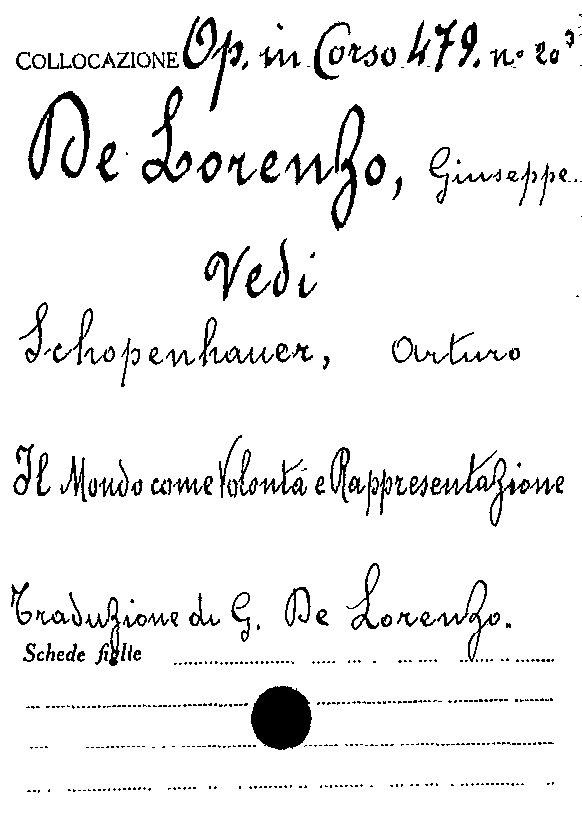 COLLOCAZIONE Op. in Corso 479. n. 20³
De Lorenzo, Giuseppe.
Vedi
Schopenhauer, Arturo
Il Mondo come Volontà e Rappresentazione
Traduzione di G. De Lorenzo.
Schede figlie